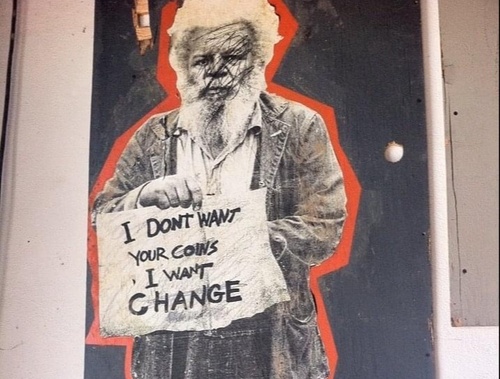 I DONT WANT
YOUR COINS
I WANT
CHANGE